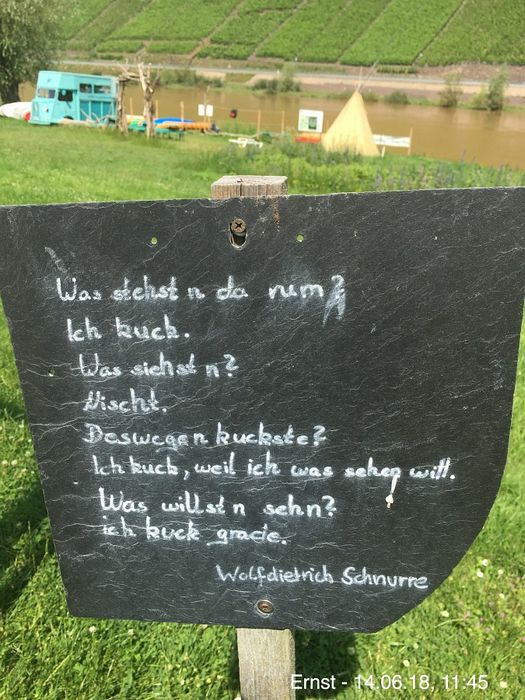 Was stehst n da rum?
Ich kuck.
Was siehst n?
Nischt.
Deswegen kuckste?
Ich kuck, weil ich was sehen will.
Was willst n sehn?
ich kuck grade.
Wolfdietrich Schnurre
Ernst - 14.06.18, 11:45